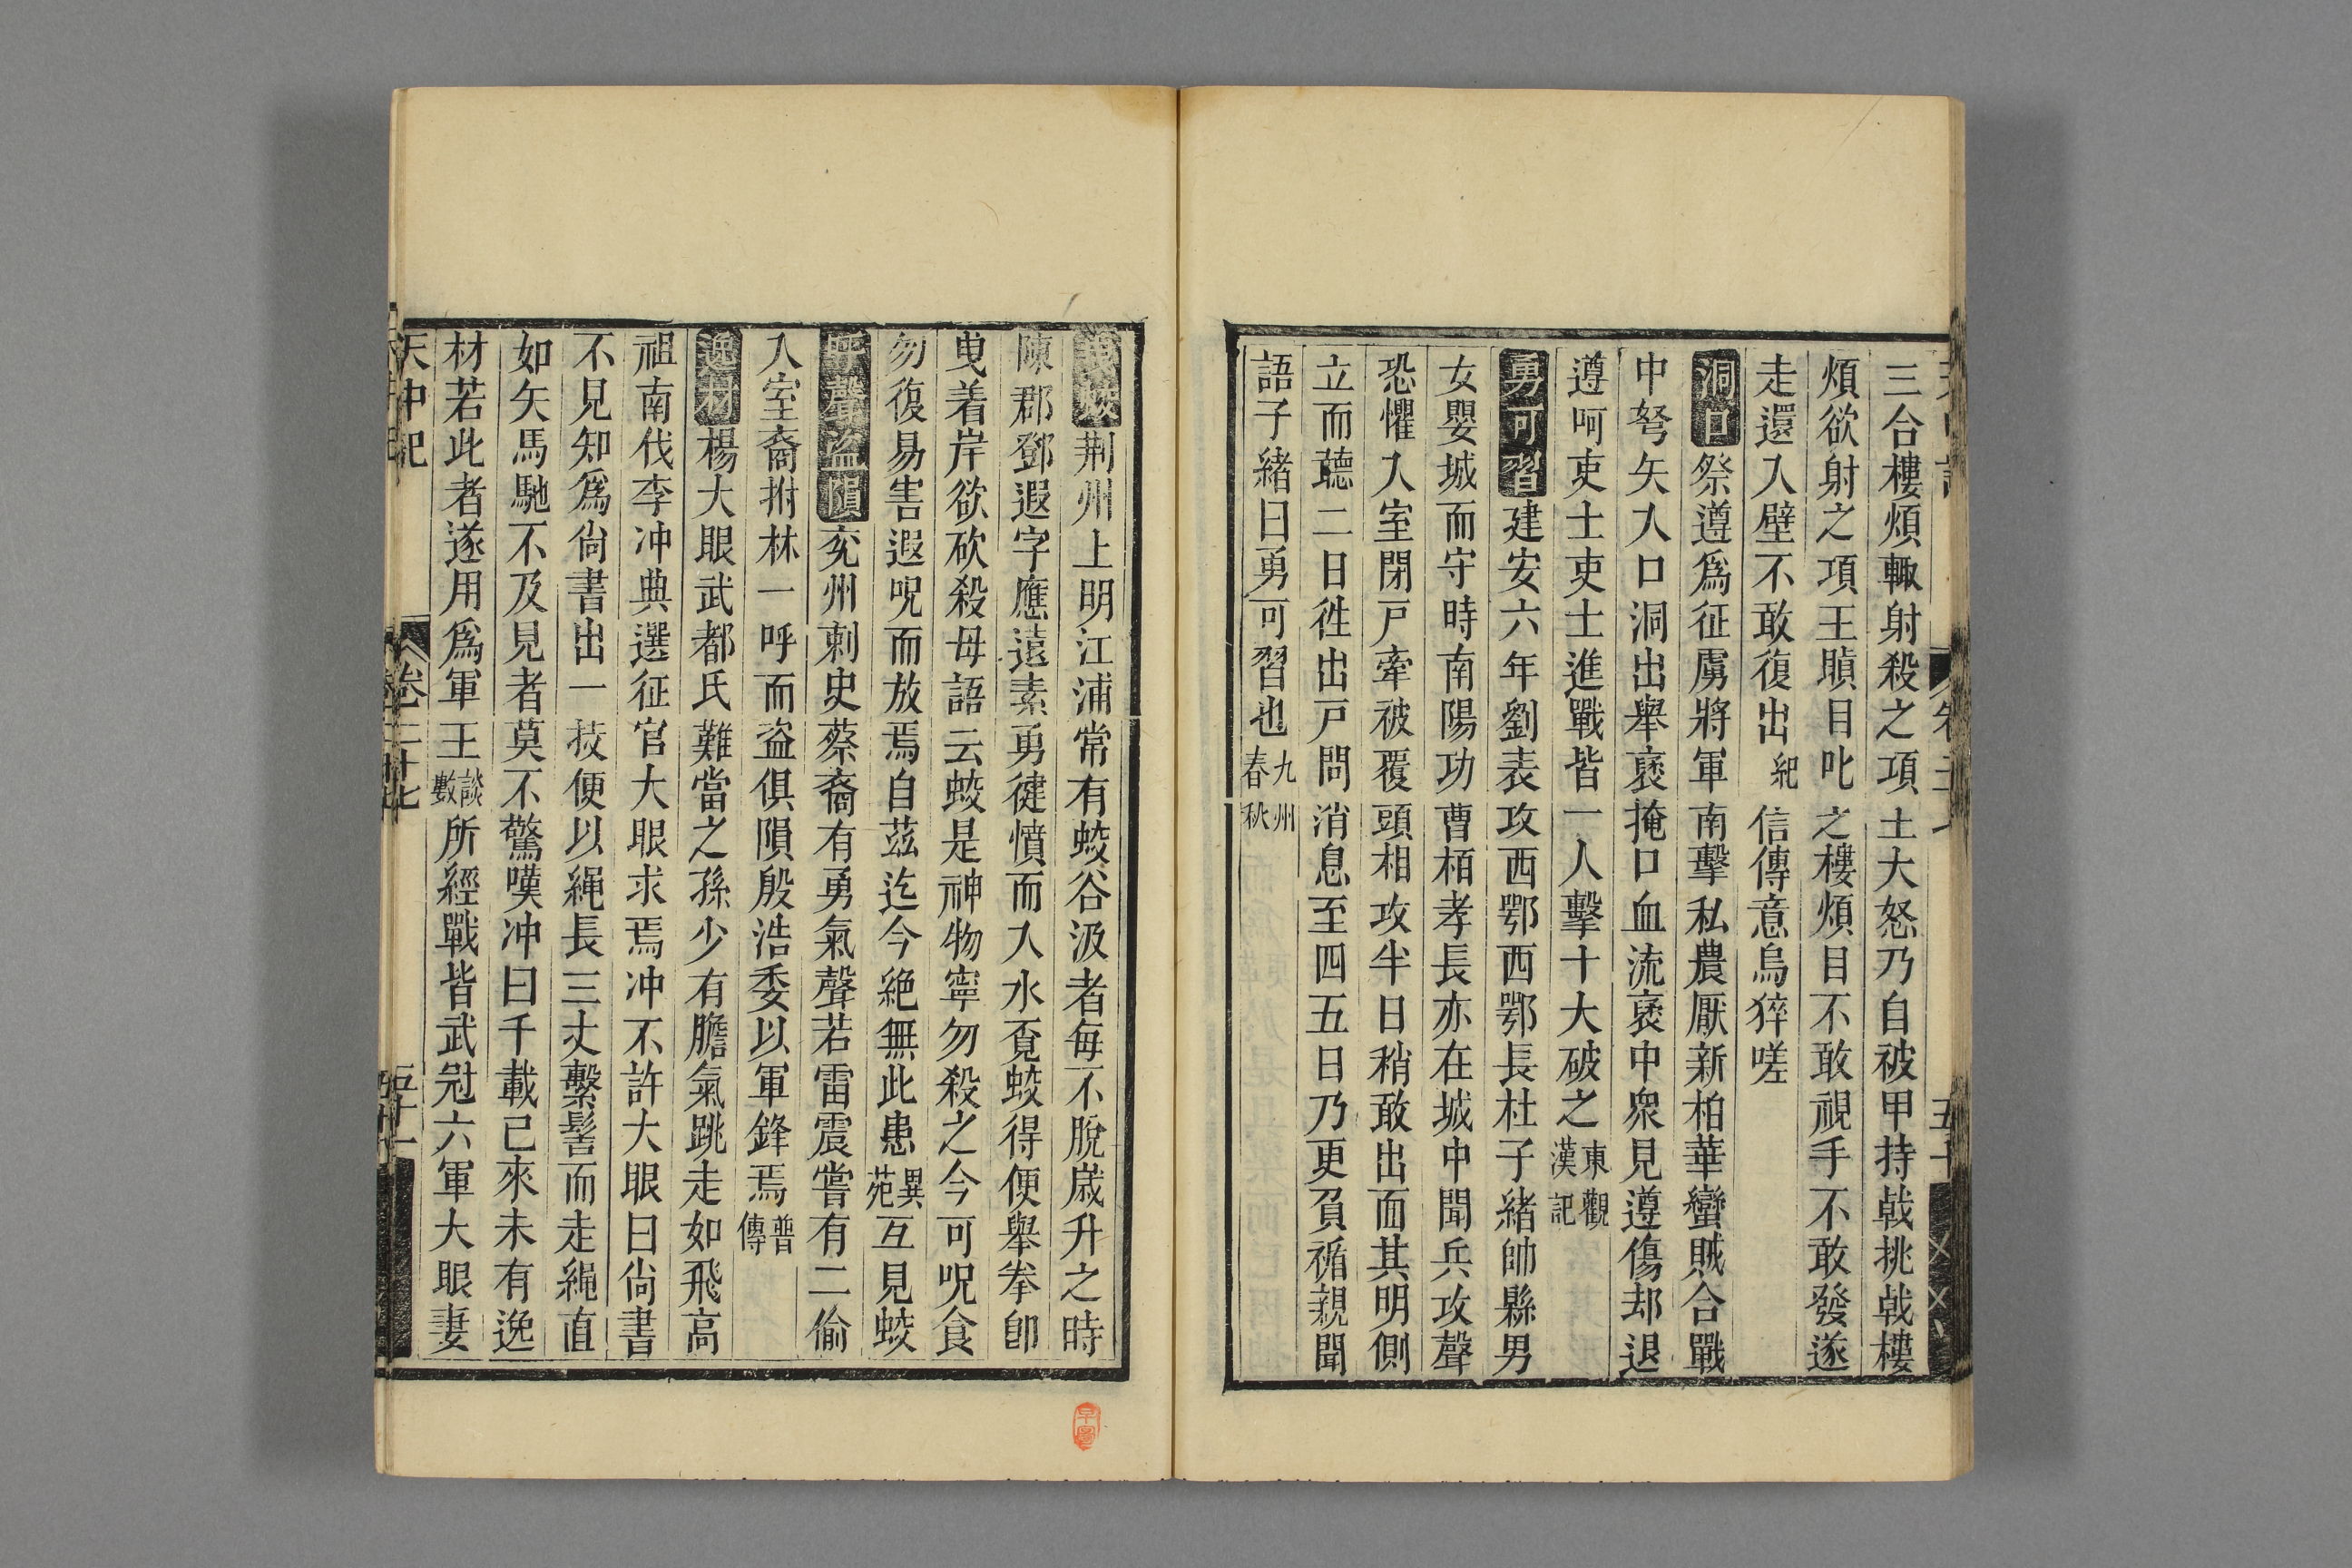 三合樓煩輙射殺之項王大怒乃自被甲持戟挑戟樓
煩欲射之項王瞋目叱之樓煩目不敢視手不敢發遂
走還入壁不敢復出紀信傳意烏猝嗟
洞口祭遵爲征虜將軍南擊私農厭新柏華蠻賊合戰
中弩矢入口洞出舉褎掩口血流褎中衆見遵傷却退
遵呵吏士吏士進戰皆一人擊十大破之東觀漢記
勇可習建安六年劉表攻西鄂西鄂長杜子緒帥縣男
女嬰城而守時南陽功曹栢孝長亦在城中聞兵攻聲
恐懼入室閉戸牽被覆頭相攻半日稍敢出面其明側
立而聽二日徃出戸問消息至四五日乃更負楯親聞
語子緒曰勇可習也九州春秋
荆州上明江浦常有蛟谷汲者每不脫歲升之時
陳郡鄧遐字應遠素勇健憤而入水覔蛟得便舉拳卽
曳着岸欲砍殺毋語云蛟是神物寧勿殺之今可呪食
勿復易害遐呪而放焉自茲迄今絶無此患異苑互見蛟
呼聲盜隕兖州刺史蔡裔有勇氣聲若雷震嘗有二偷
入室裔拊牀一呼而盗俱隕殷浩委以軍鋒焉晉傳
逸材楊大眼武都氐難當之孫少有膽氣跳走如飛高
祖南伐李冲典選征官大眼求焉冲不許大眼曰尙書
不見知爲尙書出一技便以繩長三丈繫髻而走繩直
如矢馬馳不及見者莫不驚嘆冲曰千載已來未有逸
材若此者遂用爲軍主談數所經戰皆武冠六軍大眼妻
天中記 卷二十七 五十一